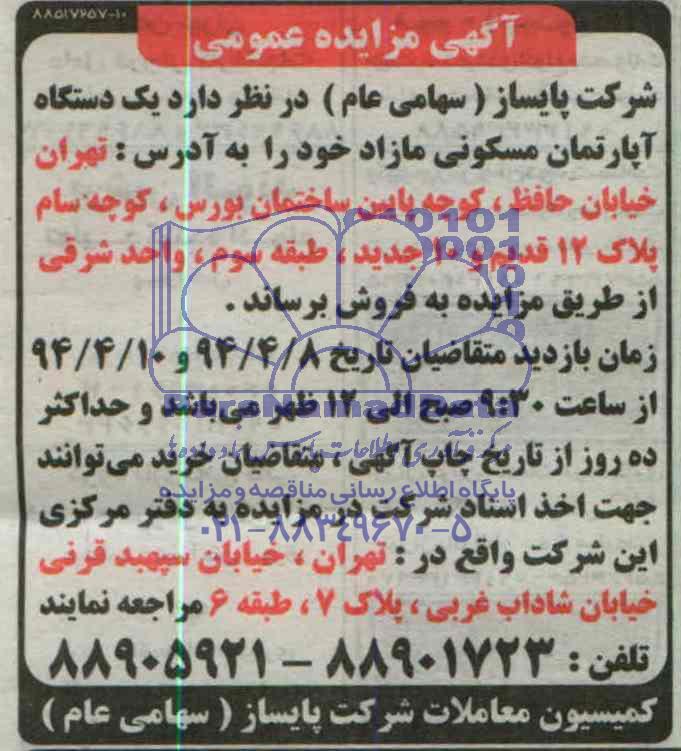 ۸۸۵۱۷۶۵۷-۱۰
آگهی مزایده عمومی
شرکت پایساز ( سهامی عام ) در نظر دارد یک دستگاه
آپارتمان مسکونی مازاد خود را به آدرس : تهران
خیابان حافظ ، کوچه پایین ساختمان بورس ، کوچه سام
پلاک ۱۲ قدیم و ۱۰ جدید ، طبقه سوم ، واحد شرقی
از طریق مزایده به فروش برساند .
زمان بازدید متقاضیان تاریخ ۹۴/۴/۸ و ۹۴/۴/۱۰
از ساعت ۹:۳۰ صبح الی ۱۲ ظهر می‌باشد و حداکثر
ده روز از تاریخ چاپ آگهی ، متقاضیان خرید می‌توانند
جهت اخذ اسناد شرکت در مزایده به دفتر مرکزی
این شرکت واقع در : تهران ، خیابان سپهبد قرنی
خیابان شاداب غربی ، پلاک ۷ ، طبقه ۶ مراجعه نمایند
تلفن : ۸۸۹۰۱۷۲۳ – ۸۸۹۰۵۹۲۱
کمیسیون معاملات شرکت پایساز ( سهامی عام )
پایگاه اطلاع رسانی مناقصه و مزایده
۰۲۱-۸۸۳۴۹۶۷۰-۵